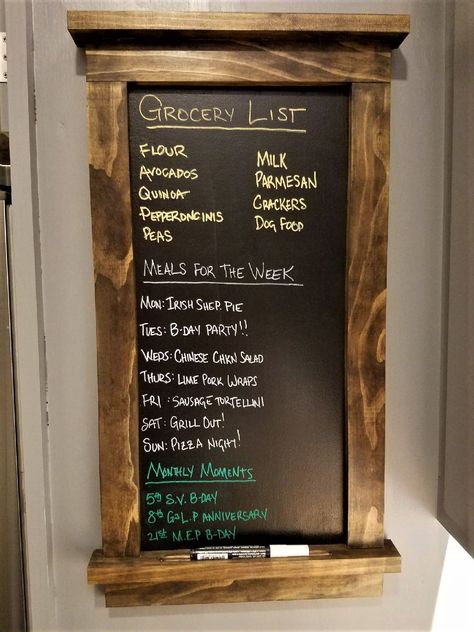 GROCERY LIST
FLOUR
AVOCADOS
QUINOA
PEPPERONCINIS
PEAS
MILK
PARMESAN
CRACKERS
DOG FOOD
MEALS FOR THE WEEK
MON: IRISH SHEP. PIE
TUES: B-DAY PARTY!!
WEDS: CHINESE CHKN SALAD
THURS: LIME PORK WRAPS
FRI : SAUSAGE TORTELLINI
SAT: GRILL OUT!
SUN: PIZZA NIGHT!
MONTHLY MOMENTS
5th S.V. B-DAY
8th G&L.P ANNIVERSARY
21st M.E.P B-DAY